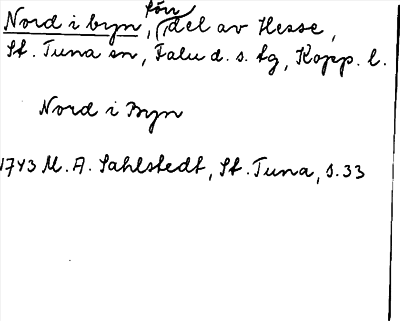 Nord i byn, förr (del av Hesse,
St. Tuna sn, Falu d. s. tg, Kopp. l.
Nord i Byn
1743 M. A. Sahlstedt, St. Tuna, s. 33